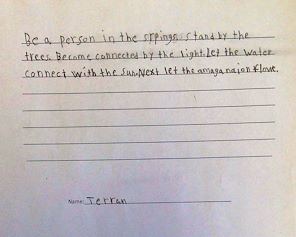 Be a person in the srpings. stand by the
trees. Become connected by the light. Let the water
connect with the sun. Next let the amaganaion flowe.
Name: Terran